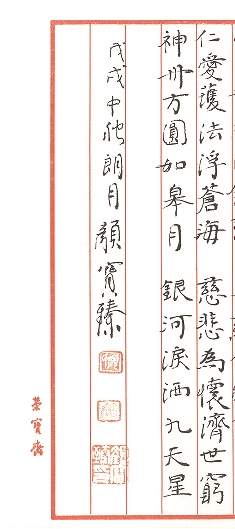 仁愛護法浮蒼海 慈悲為懷濟世窮
神州方圓如皋月 銀河淚洒九天星
戊戌中秋朗月顏寶臻
榮寶齋